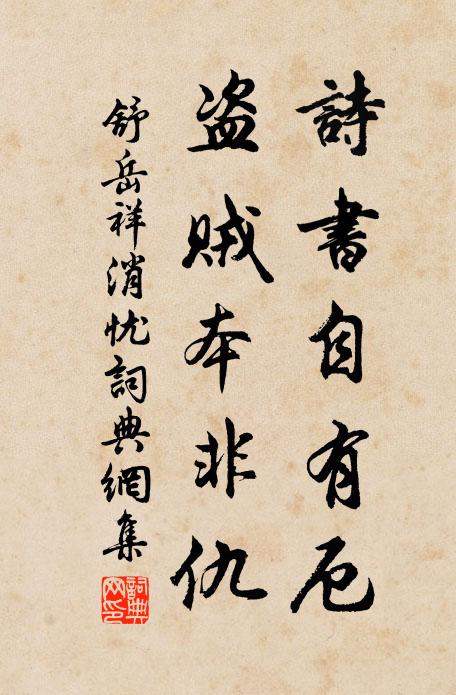 詩書自有厄
盗賊本非仇
舒岳祥消忧詞典網集
詞典网印